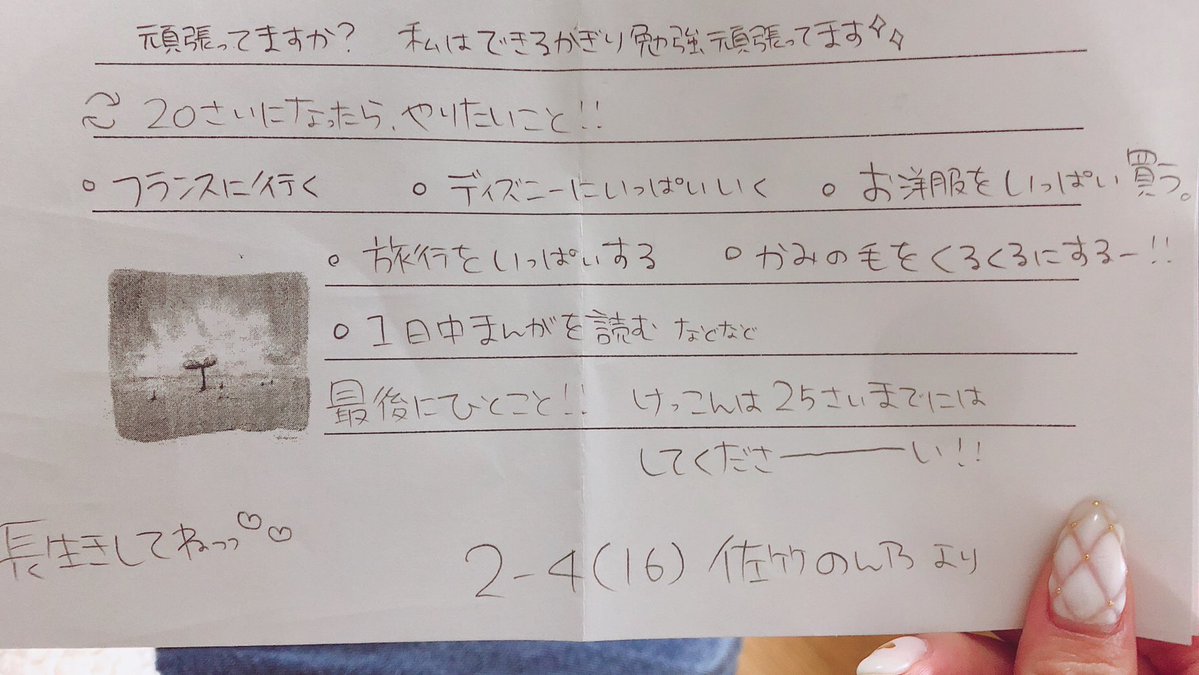 頑張ってますか? 私はできるかぎり勉強頑張ってます✧✧
20さいになったら、やりたいこと!!
○ フランスに行く ○ ディズニーにいっぱいいく ○ お洋服をいっぱい買う。
○ 旅行をいっぱいする ○ かみの毛をくるくるにするー!!
○ 1日中まんがを読む などなど
最後にひとこと!! けっこんは25さいまでには
してくださ―――い!!
長生きしてねっっ♡♡
2-4(16) 佐竹のん乃 より